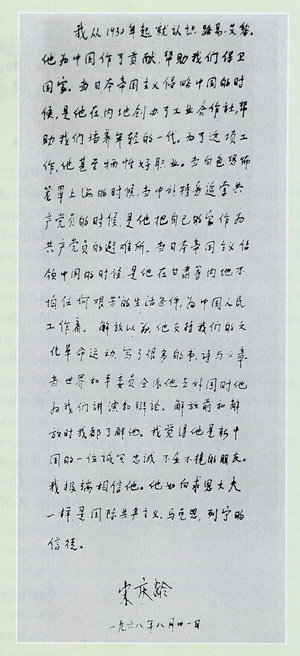 我从1932年起就认识路易·艾黎。
他为中国作了贡献,帮助我们保卫
国家。当日本帝国主义侵略中国的时
候,是他在内地创办了工业合作社,帮
助我们培养年轻的一代。为了这项工
作,他甚至牺牲了好职业。当白色恐怖
笼罩上海的时候,当中外特务追拿共
产党员的时候,是他把自己的家作为
共产党员的避难所。当日本帝国主义占
领中国的时候,是他在甘肃等内地不
怕任何艰苦的生活条件,为中国人民
工作着。解放以后,他支持我们的文
化革命运动,写了很多的书、诗与文章
当世界和平委员会派他去外国时他
为我们讲演和辩论。解放前和解
放时我都了解他。我觉得他是新中
国的一位诚实忠诚不屈不挠的朋友。
我极端相信他。他如白求恩大夫
一样,是国际共产主义,马克思,列宁的
信徒。
宋庆龄
一九六八年八月 一日